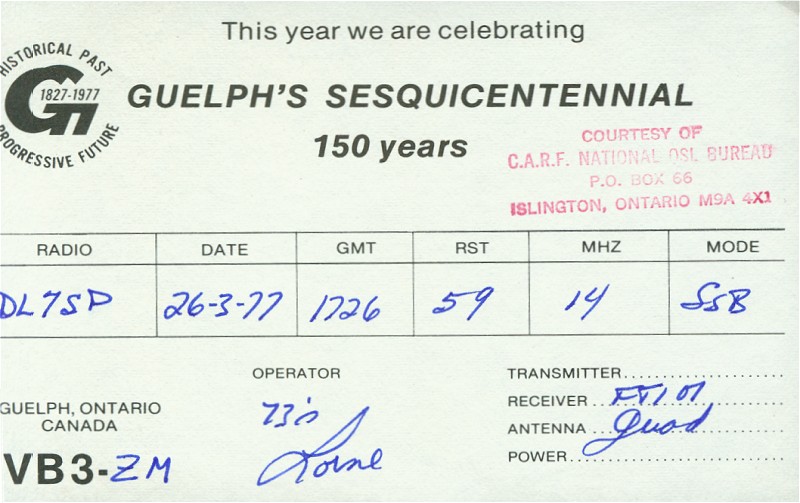 This year we are celebrating
HISTORICAL PAST
1827-1977
PROGRESSIVE FUTURE
GUELPH'S SESQUICENTENNIAL
150 years
COURTESY OF
C.A.R.F. NATIONAL QSL BUREAU
P.O. BOX 66
ISLINGTON, ONTARIO M9A 4X1
RADIO DATE GMT RST MHZ MODE
DL7SP 26-3-77 1726 59 14 SSB
OPERATOR
73's
Lorne
GUELPH, ONTARIO
CANADA
VB3-ZM
TRANSMITTER
RECEIVER FT101
ANTENNA Quad
POWER